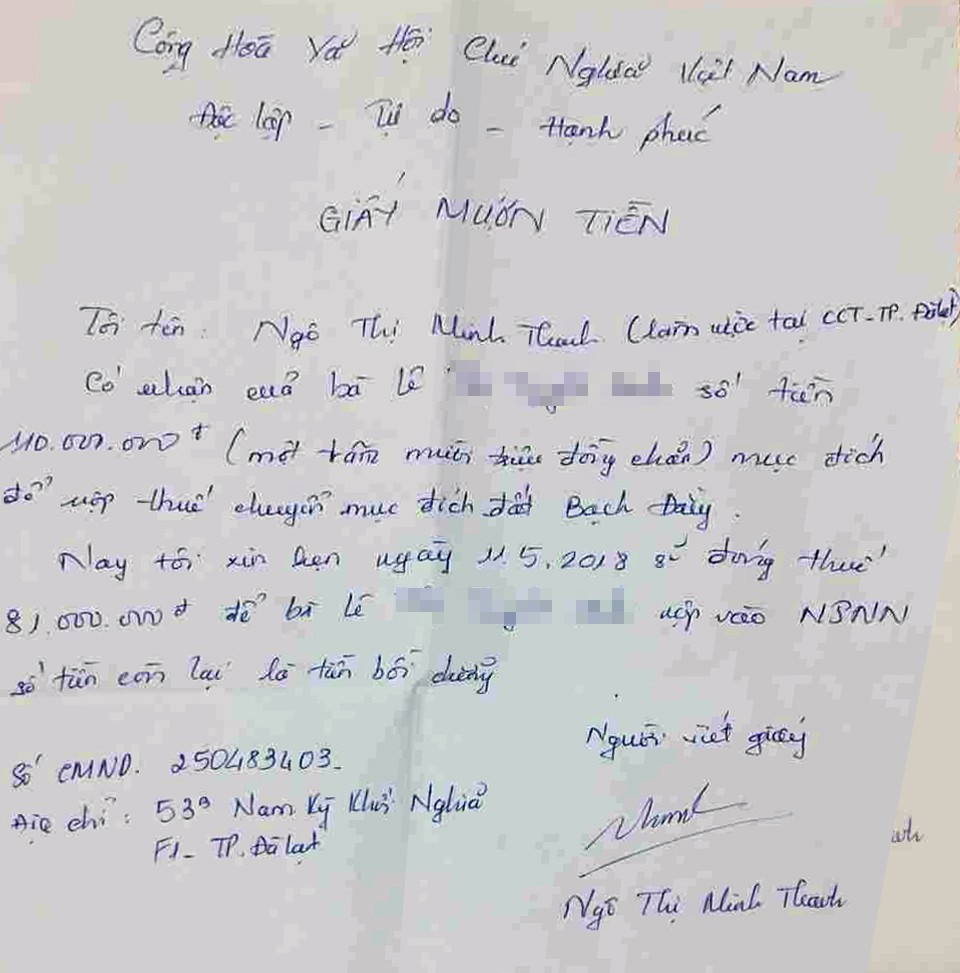 Cộng Hoà Xã Hội Chủ Nghĩa Việt Nam
Độc lập - Tự do - Hạnh phúc
GIẤY MƯỢN TIỀN
Tôi tên: Ngô Thị Minh Thanh (Làm việc tại CCT-TP. Đàlạt)
Có nhận của bà Lê số tiền
110.000.000đ (một trăm mười triệu đồng chẵn) mục đích
để nộp thuế chuyển mục đích đất Bạch Đằng.
Nay tôi xin hẹn ngày 11.5.2018 sẽ đóng thuế
81.000.000đ để bà Lê nộp vào NSNN
số tiền còn lại là tiền bồi dưỡng
Người viết giấy
Số CMND. 250483403-
Địa chỉ: 53a Nam Kỳ Khởi Nghĩa
F1- TP. Đàlạt
Ngô Thị Minh Thanh